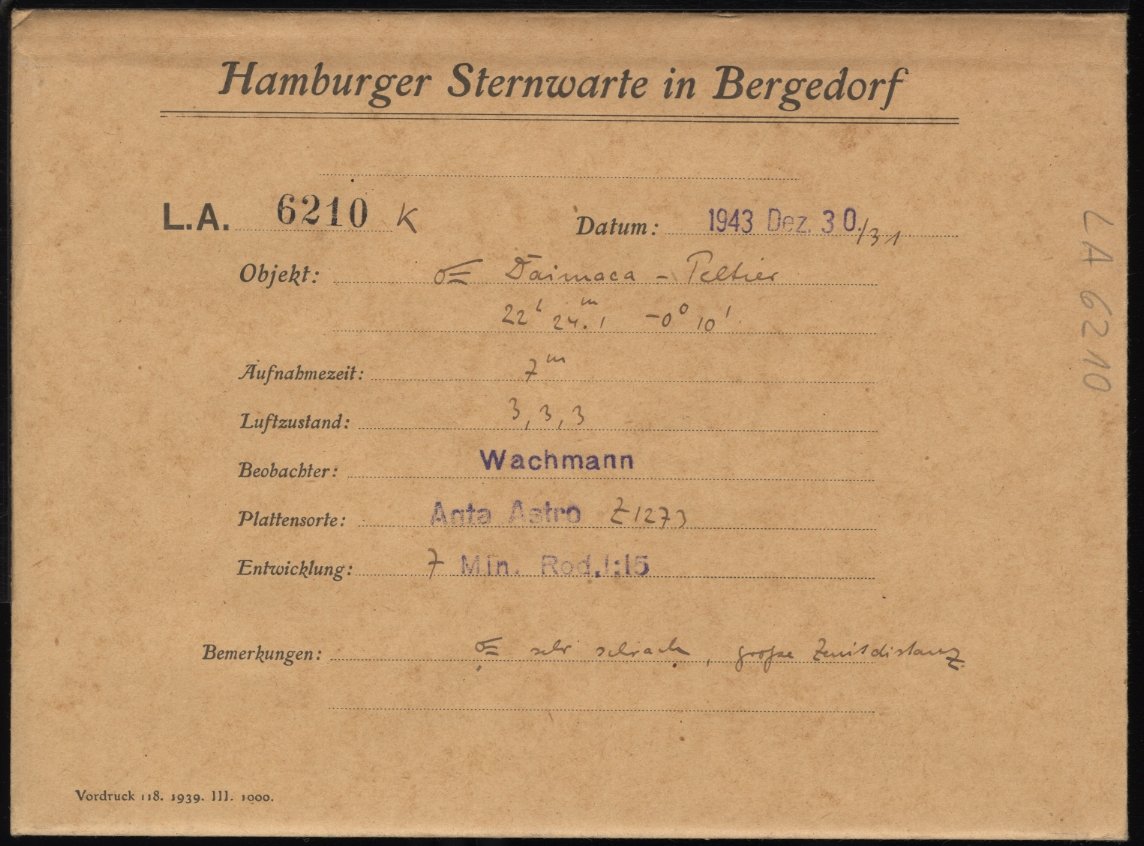 Hamburger Sternwarte in Bergedorf
L.A. 6210 K Datum: 1943 Dez. 30./31
Objekt: ☄ Daimaca - Peltier
22ʰ 24.ᵐ1 -0° 10'
Aufnahmezeit: 7ᵐ
Luftzustand: 3,3,3
Beobachter: Wachmann
Plattensorte: Agfa Astro Z1273
Entwicklung: 7 Min. Rod.1:15
Bemerkungen: ☄ sehr schwach, große Zenitdistanz
Vordruck 118. 1939. III. 1000.
LA 6210